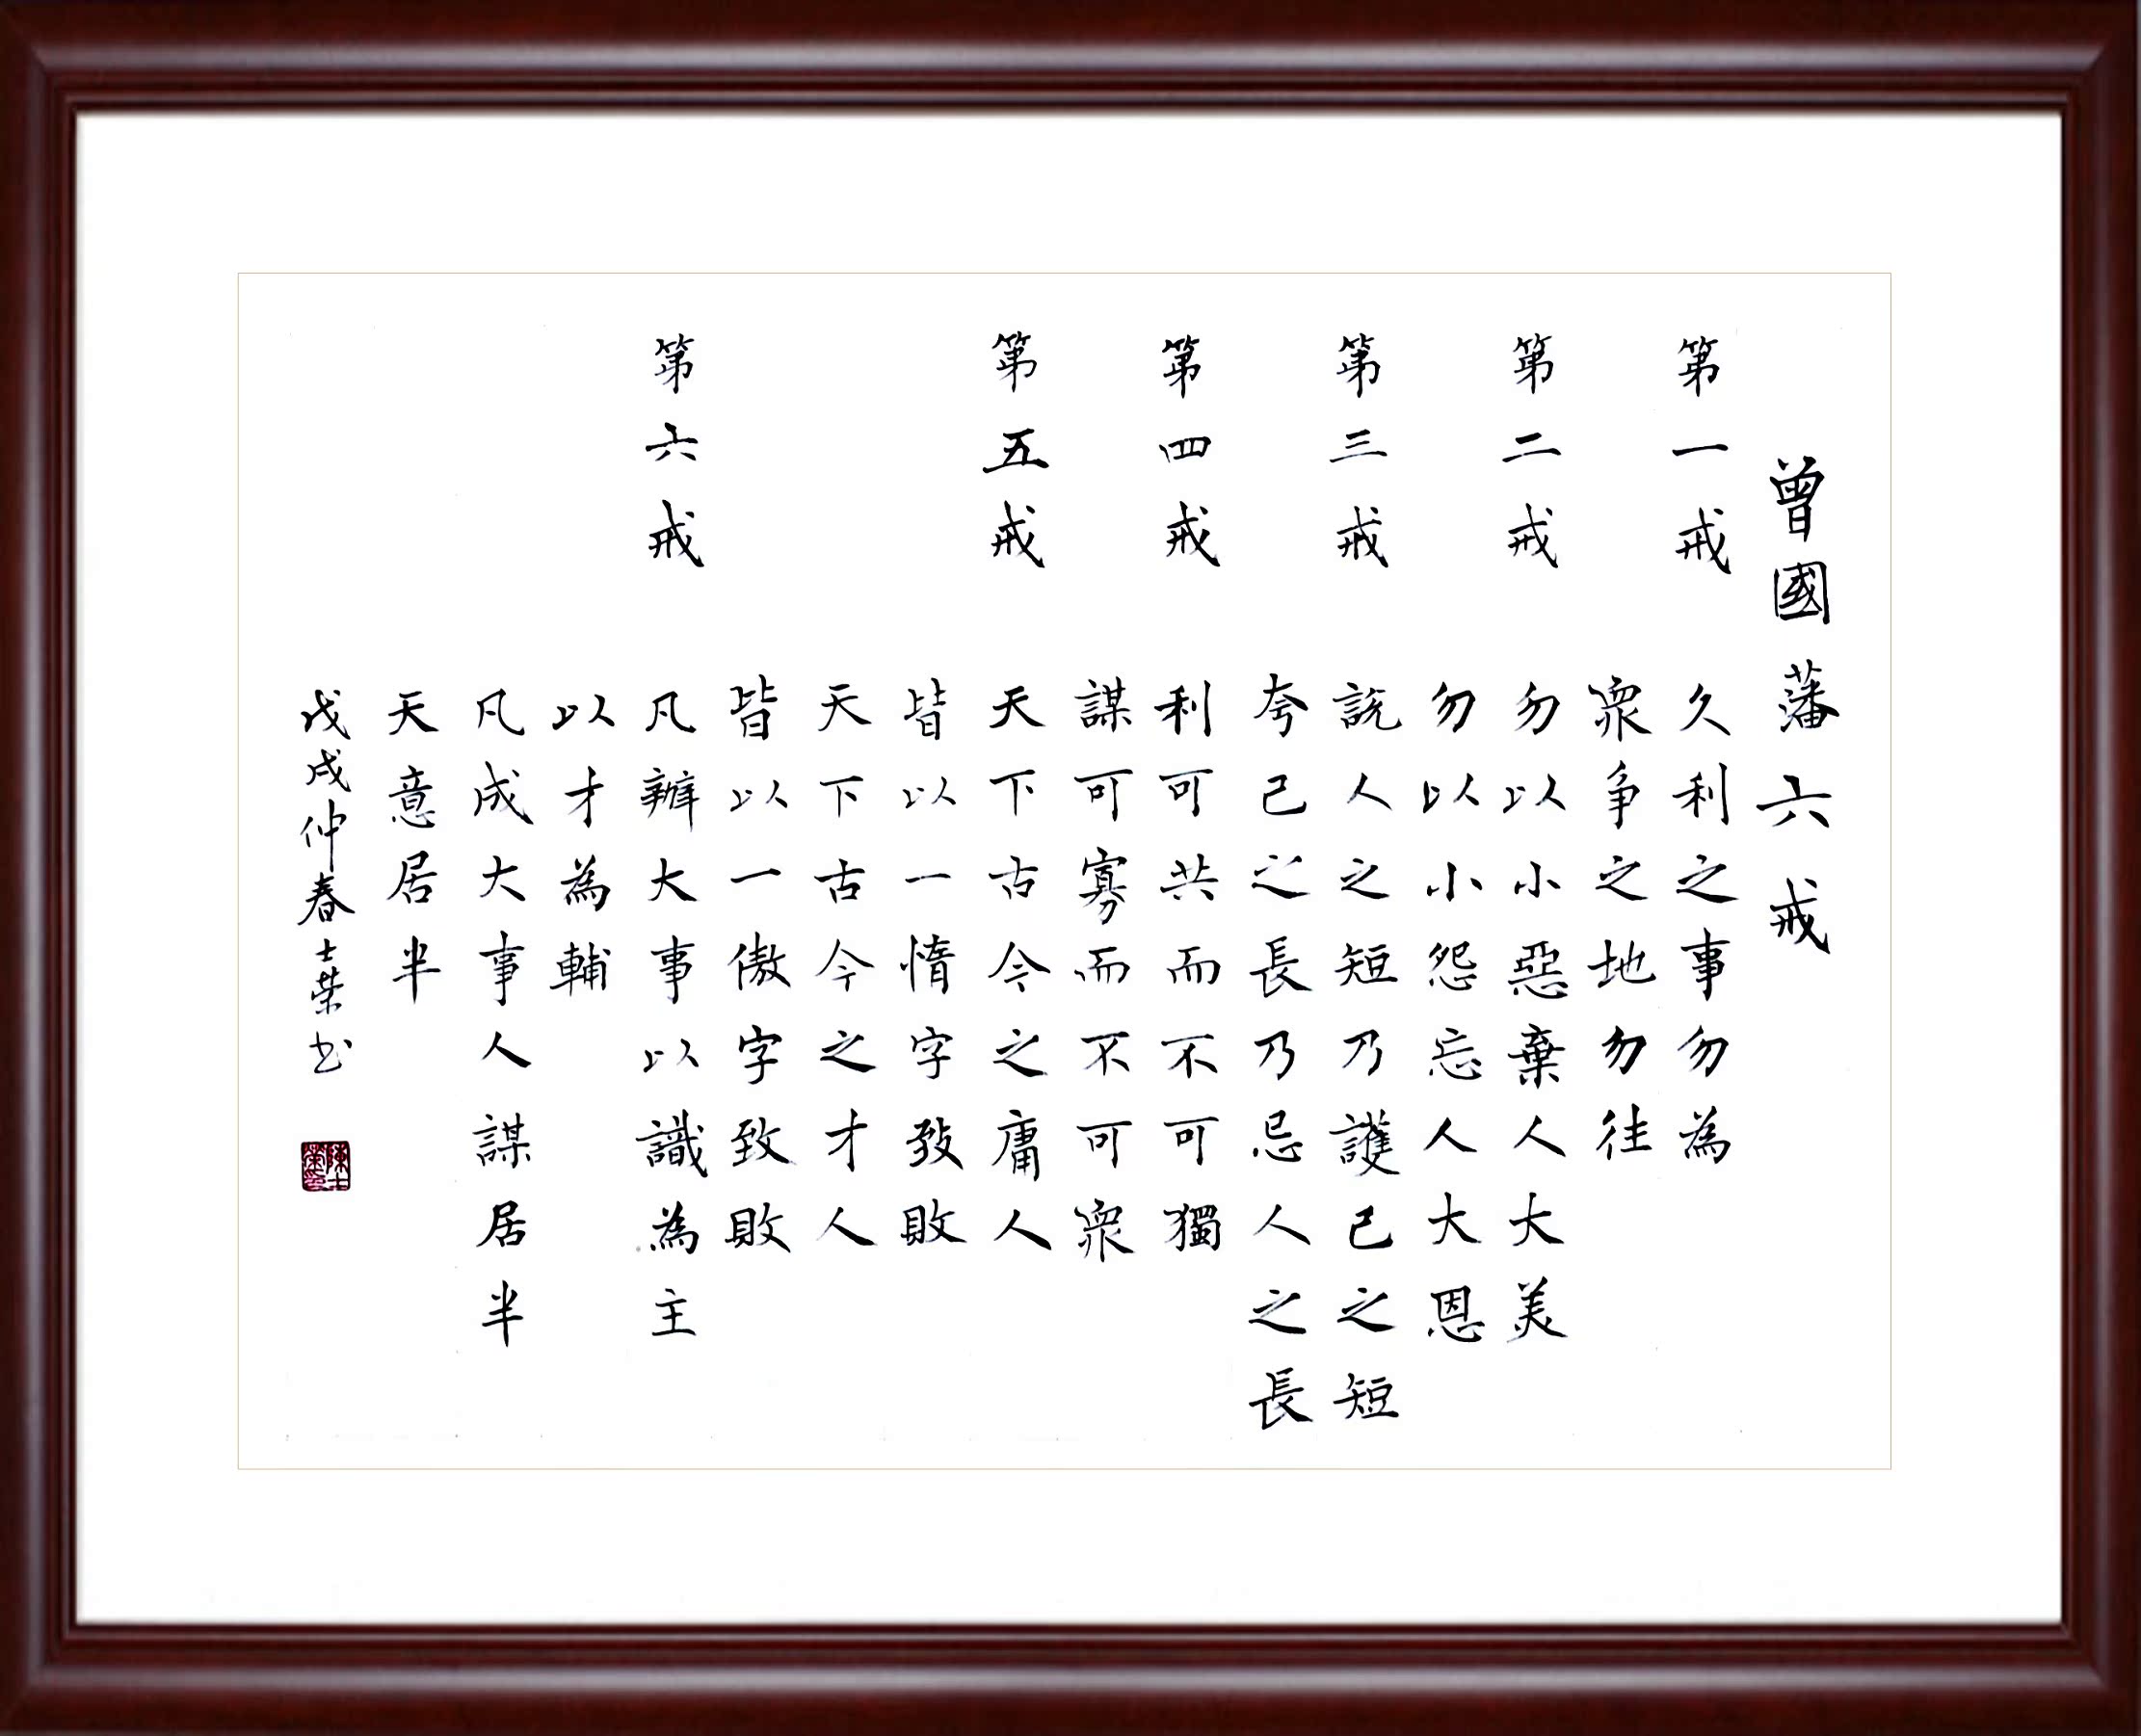 曾國藩六戒
第一戒 久利之事勿為
衆争之地勿往
第二戒 勿以小惡棄人大美
勿以小怨忘人大恩
第三戒 説人之短乃護己之短
夸己之長乃忌人之長
第四戒 利可共而不可獨
謀可寡而不可衆
第五戒 天下古今之庸人
皆以一惰字致敗
天下古今之才人
皆以一傲字致敗
第六戒 凡辦大事以識為主
以才為輔
凡成大事人謀居半
天意居半
戊戌仲春士荣书
陳士榮印